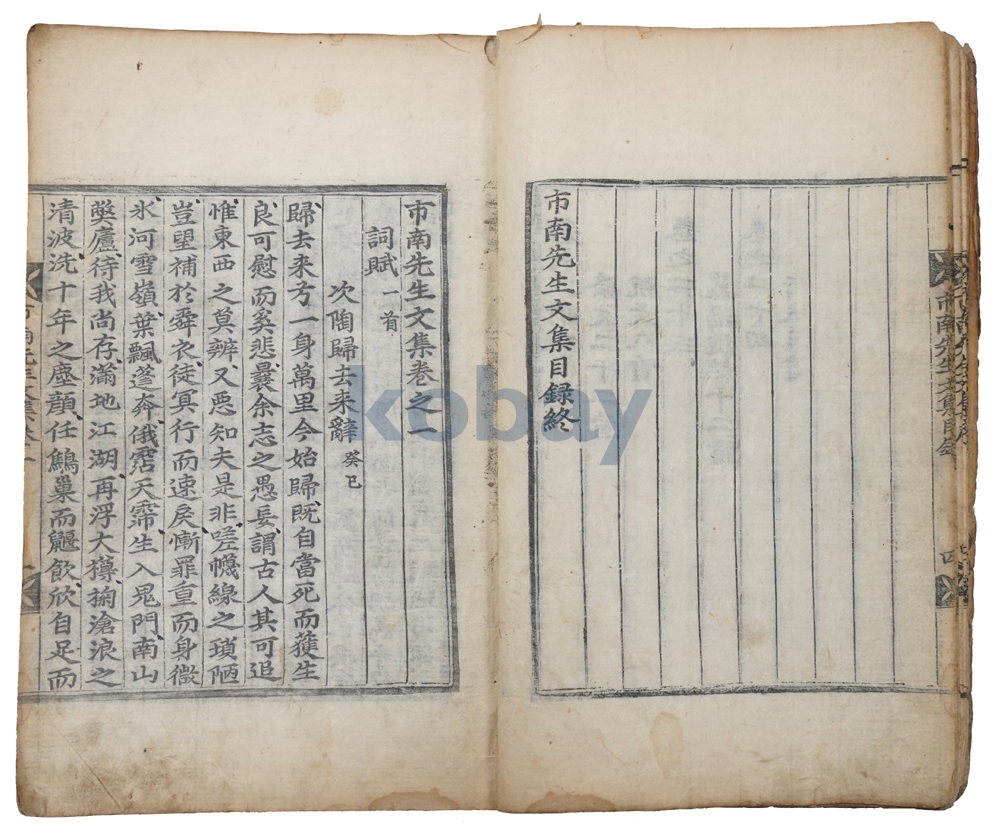 市南先生文集目録終
市南先生文集卷之一
詞賦一首
次陶歸去来辭癸巳
歸去来兮一身萬里今始歸既自當死而獲生
良可慰而奚悲曩余志之愚妄謂古人其可追
惟東西之莫辨又悪知夫是非嗟幭線之瑣陋
豈望補於舜衣徒冥行而速戾慚罪重而身微
氷河雪嶺葉飄蓬奔俄霑天霈生入鬼門南山
獘廬待我尚存滿地江湖再浮大樽掬滄浪之
清波洗十年之塵顔任鷦巢而鼴飲欣自足而
kobay